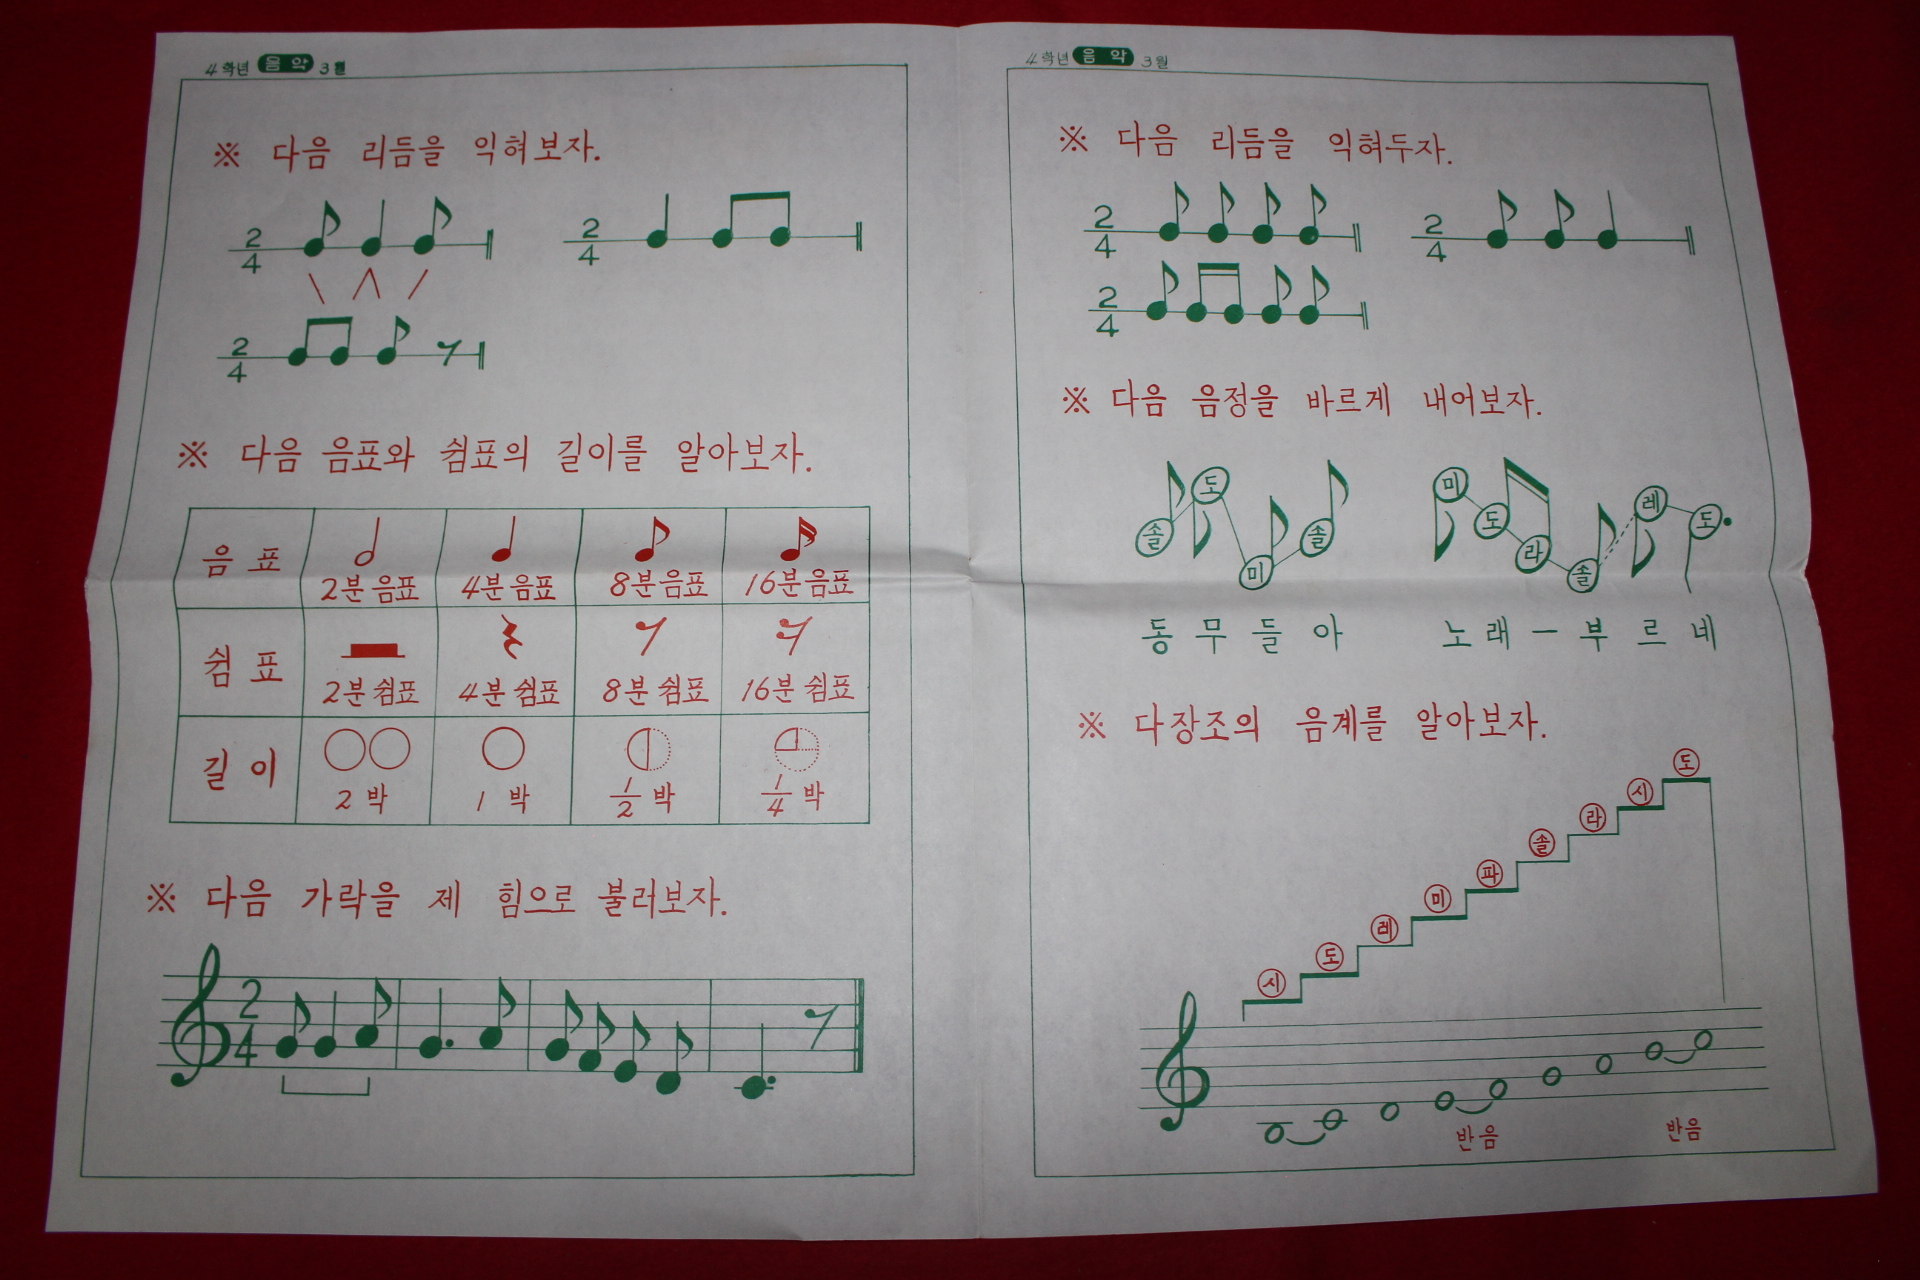 4학년 음악 3월
※ 다음 리듬을 익혀보자.
2/4
2/4
2/4
※ 다음 음표와 쉼표의 길이를 알아보자.
음표 2분음표 4분음표 8분음표 16분음표
쉼표 2분쉼표 4분쉼표 8분쉼표 16분쉼표
길이 2박 1박 1/2박 1/4박
※ 다음 가락을 제 힘으로 불러보자.
2/4
4학년 음악 3월
※ 다음 리듬을 익혀두자.
2/4
2/4
2/4
※ 다음 음정을 바르게 내어보자.
솔 도 미 솔 미 도 라 솔 레 도
동무들아 노래-부르네
※ 다장조의 음계를 알아보자.
시 도 레 미 파 솔 라 시 도
반음 반음